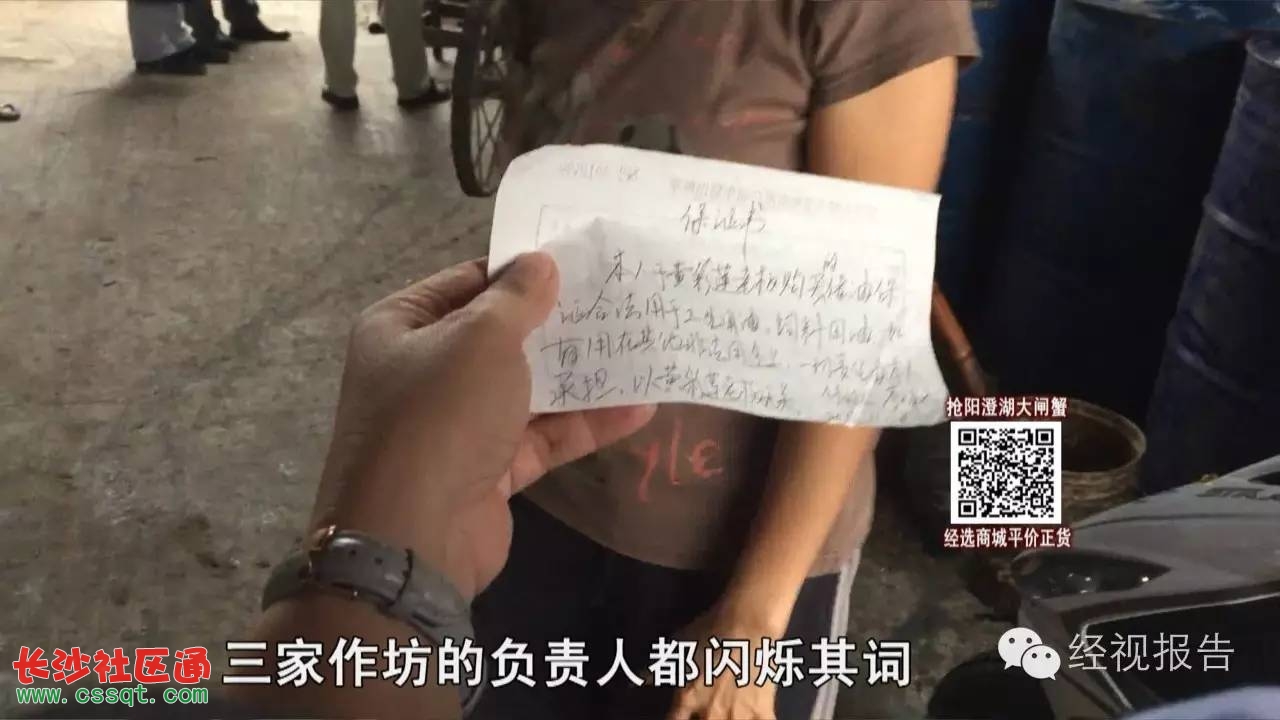 保证书
本人于黄彩莲老板购买的猪油保
证合法用于工业用油、饲料用油,如
有用在其他非法用途上,一切责任由本人
承担,以黄彩莲老板无关
抢阳澄湖大闸蟹
经选商城平价正货
三家作坊的负责人都闪烁其词
经视报告
长沙社区通
www.cssqt.com